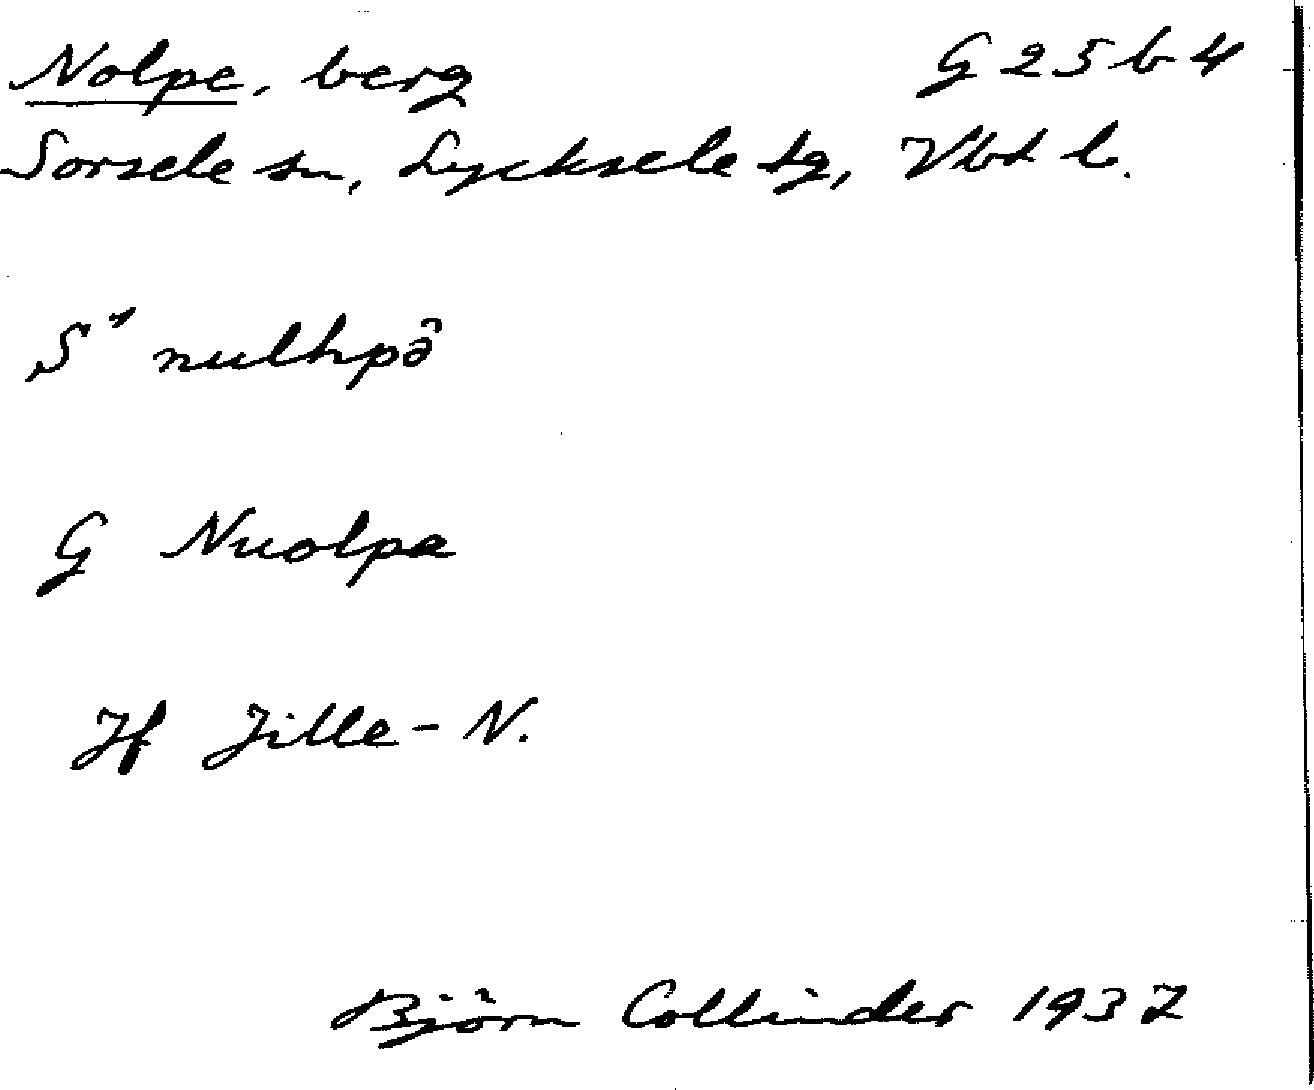 Nolpe, berg G 25 b 4
Sorsele sn, Lycksele tg, Vbt l.
S⁴ nulhpə̂
G Nuolpe
Jf Jille-N.
Björn Collinder 1937